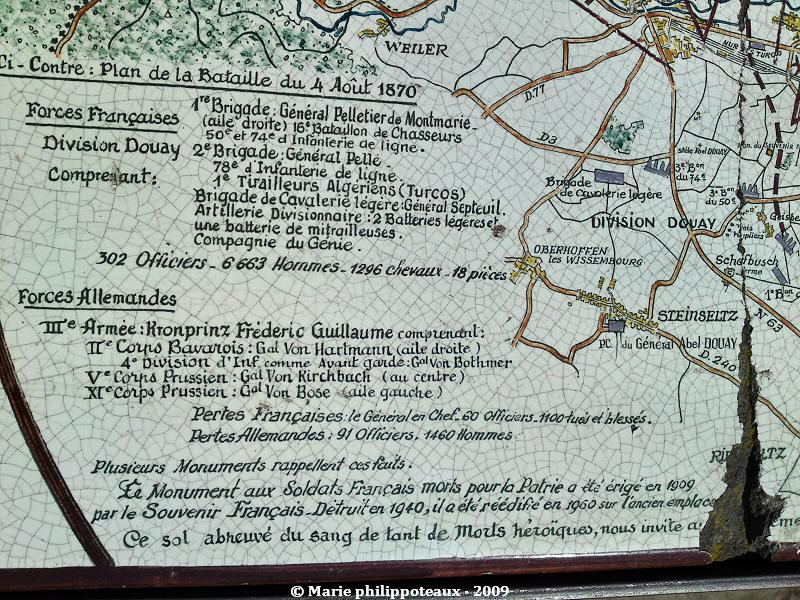 WEILER
MUR DES TURCOS
D.77
D3
Ci-Contre: Plan de la Bataille du 4 Août 1870
Forces Françaises
1re Brigade: Général Pelletier de Montmarie_
(aile droite) 16e Bataillon de Chasseurs
50e et 74e d'Infanterie de ligne.
Division Douay
2e Brigade: Général Pellé_
78e d'Infanterie de ligne.
Comprenant:
1e Tirailleurs Algériens (Turcos)
Brigade de Cavalerie légère: Général Septeuil.
Artillerie Divisionnaire: 2 Batteries légères et
une batterie de mitrailleuses.
Compagnie du Génie.
302 Officiers_ 6 663 Hommes_ 1296 chevaux_ 18 pièces
stèle Abel DOUAY
3e Bon
du 74e
Brigade
de Cavalerie légère
3e Bon
du 50e
DIVISION DOUAY
OBERHOFFEN
les WISSEMBOURG
Schafbusch
Ferme
STEINSELTZ
N 63
PC. du Général Abel DOUAY
D.240
Forces Allemandes
IIIe Armée: Kronprinz Fréderic Guillaume comprenant:
IIe Corps Bavarois: Gal Von Hartmann (aile droite)
4e Division d'Inf. comme Avant garde: Gal Von Bothmer
Ve Corps Prussien: Gal Von Kirchbach (au centre)
XIe Corps Prussien: Gal Von Bose (aile gauche)
Pertes Françaises: le Général en Chef_ 60 Officiers_ 1100 tués et blessés.
Pertes Allemandes: 91 Officiers. 1460 Hommes
Plusieurs Monuments rappellent ces faits.
Le Monument aux Soldats Français morts pour la Patrie a été érigé en 1909
par le Souvenir Français_ Détruit en 1940, il a été réédifié en 1960 sur l'ancien
Ce sol abreuvé du sang de tant de Morts héroïques, nous invite
© Marie philippoteaux - 2009